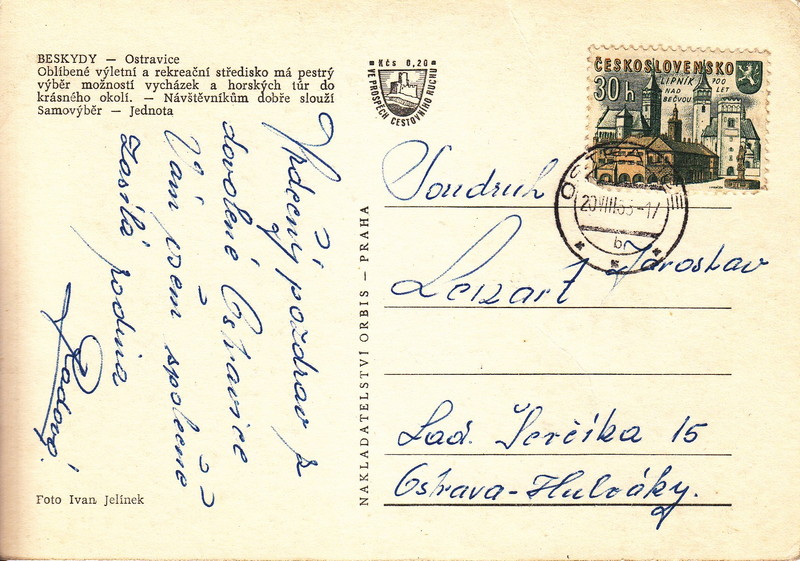 BESKYDY — Ostravice
Oblíbené výletní a rekreační středisko má pestrý
výběr možností vycházek a horských túr do
krásného okolí. — Návštěvníkům dobře slouží
Samovýběr — Jednota
Kčs 0,20
VE PROSPĚCH CESTOVNÍHO RUCHU
ČESKOSLOVENSKO
30 h
LIPNÍK
NAD
BEČVOU
700
LET
20.VIII.65-17
b
Srdečný pozdrav z
dovolené Ostravice
Vám všem společně
Zasílá rodina
NAKLADATELSTVÍ ORBIS — PRAHA
Soudruh
Jaroslav
Lad. Ševčíka 15
Ostrava-Hulváky.
Foto Ivan Jelínek